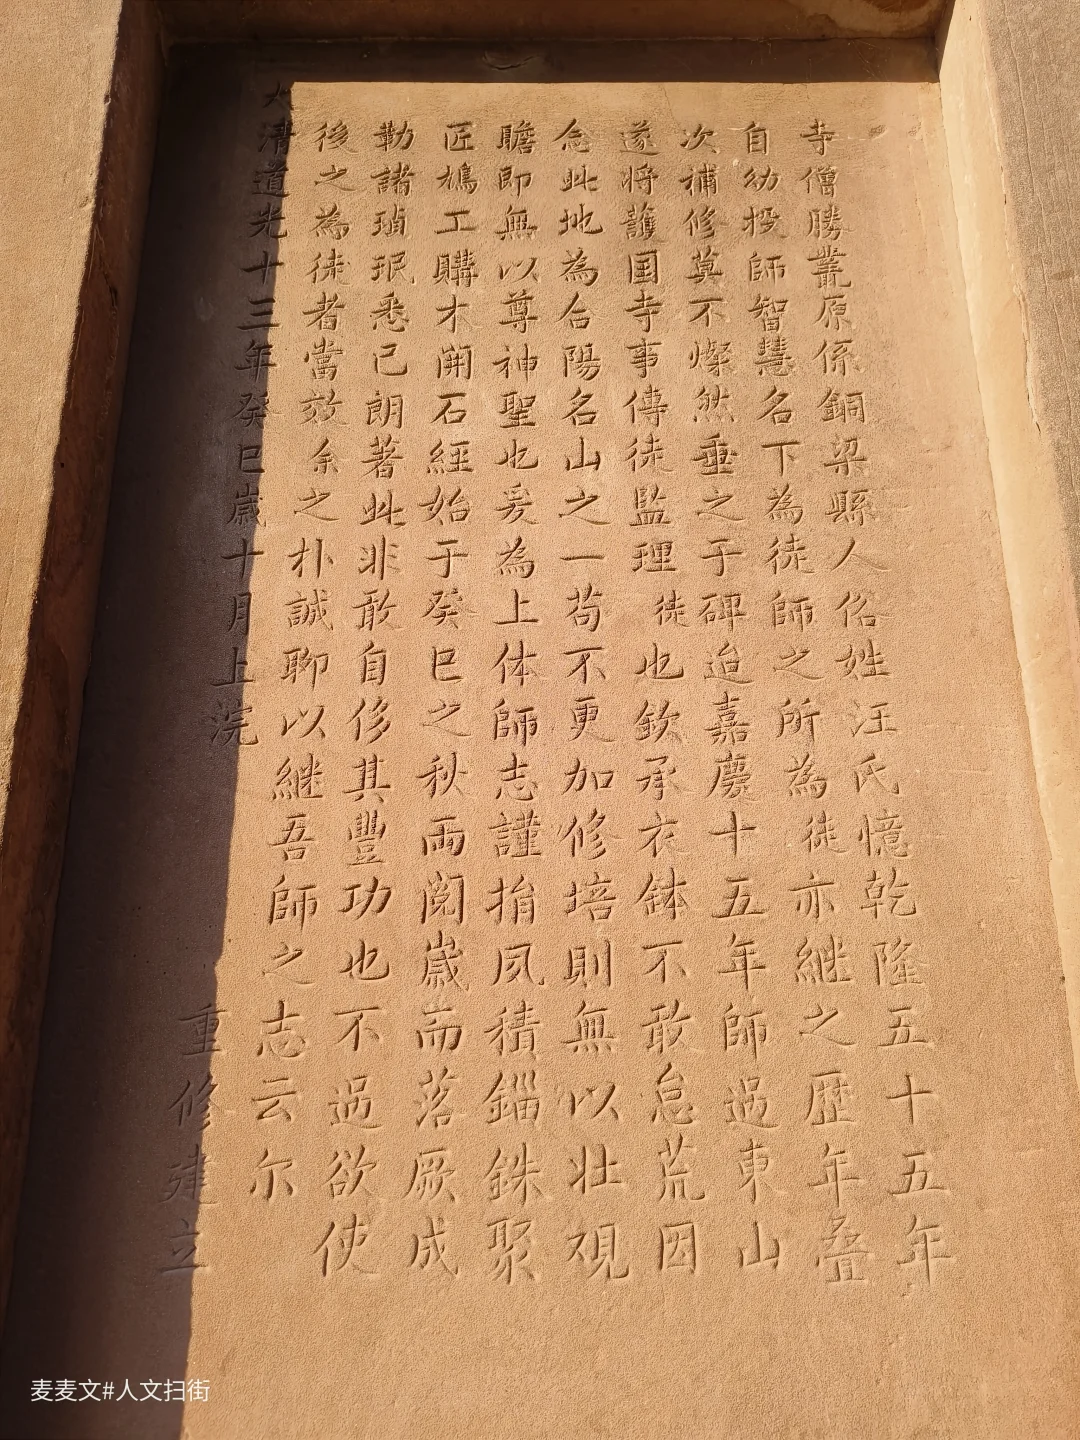 寺僧勝叢原係銅梁縣人俗姓汪氏憶乾隆五十五年
自幼投師智慧名下為徒師之所為徒亦継之歷年叠
次補修莫不燦然垂之于碑迨嘉慶十五年師過東山
遂將護国寺事傳徒監理徒也欽承衣鉢不敢怠荒因
念此地為合陽名山之一苟不更加修培則無以壯覌
瞻即無以尊神聖也爰為上体師志謹捐夙積錙銖聚
匠鳩工購木開石經始于癸巳之秋兩閱歲而落厥成
勒諸瑱珉悉已朗著此非敢自侈其豐功也不過欲使
後之為徒者當效余之朴誠聊以継吾師之志云尔
大清道光十三年癸巳歲十月上浣 重修建立
麦麦文#人文扫街